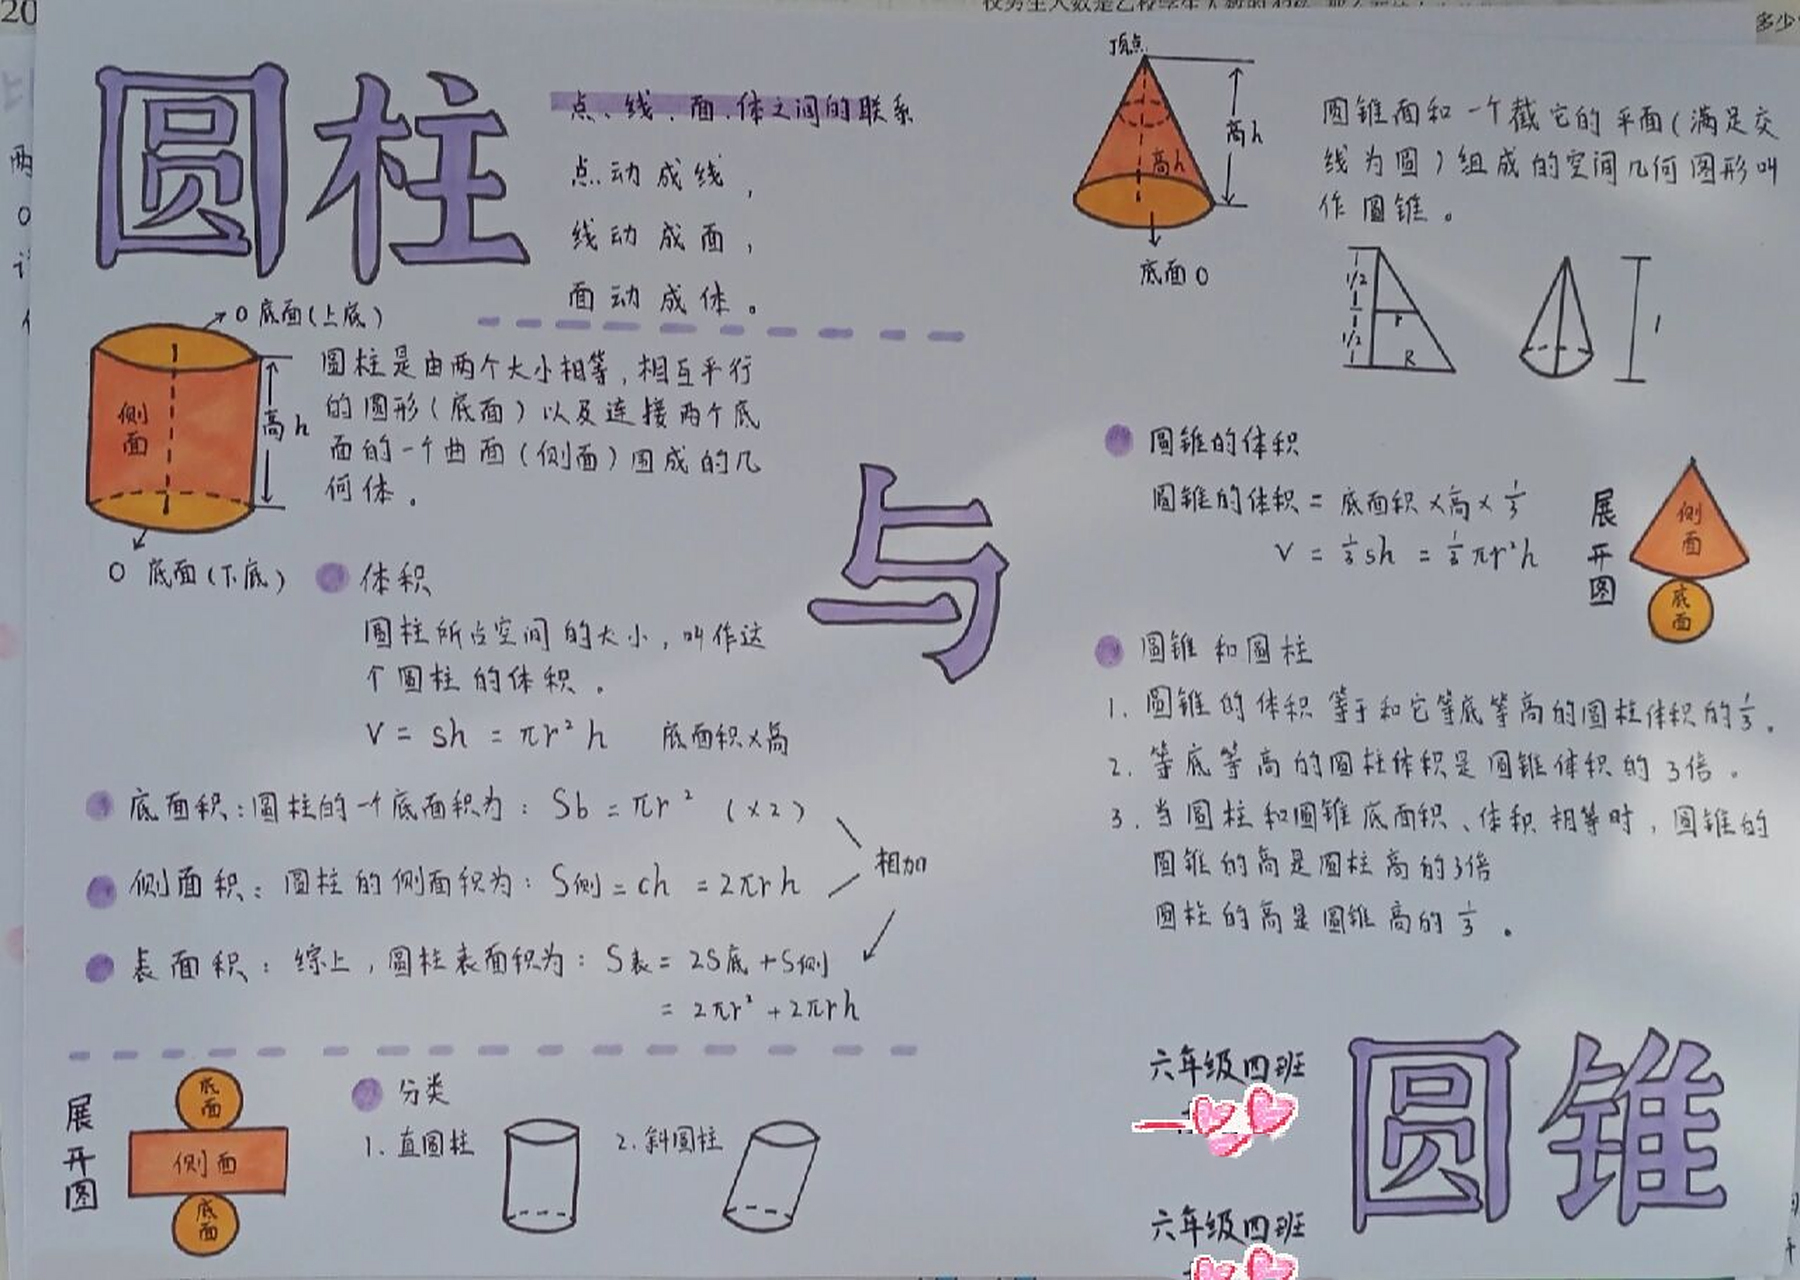 圆柱
点、线、面、体之间的联系
点动成线，
线动成面，
面动成体。
O 底面(上底)
侧面
高h
O 底面(下底)
圆柱是由两个大小相等，相互平行
的圆形(底面)以及连接两个底
面的一个曲面(侧面)围成的几
何体。
体积
圆柱所占空间的大小，叫作这
个圆柱的体积。
V = sh = πr²h 底面积×高
底面积：圆柱的一个底面积为：Sb = πr² (×2)
侧面积：圆柱的侧面积为：S侧 = ch = 2πrh
相加
表面积：综上，圆柱表面积为：S表 = 2S底 + S侧
= 2πr² + 2πrh
展开图
底面
侧面
底面
分类
1. 直圆柱
2. 斜圆柱
与
顶点
高h
高h
底面O
圆锥面和一个截它的平面(满足交
线为圆)组成的空间几何图形叫
作圆锥。
1/2
1
1/2
r
R
1
圆锥的体积
圆锥的体积 = 底面积×高×1/3
V = 1/3sh = 1/3πr²h
展开图
侧面
底面
圆锥和圆柱
1. 圆锥的体积等于和它等底等高的圆柱体积的1/3。
2. 等底等高的圆柱体积是圆锥体积的3倍。
3. 当圆柱和圆锥底面积、体积相等时，圆锥的
圆锥的高是圆柱高的3倍
圆柱的高是圆锥高的1/3。
六年级四班
六年级四班
圆锥
20
多少
两